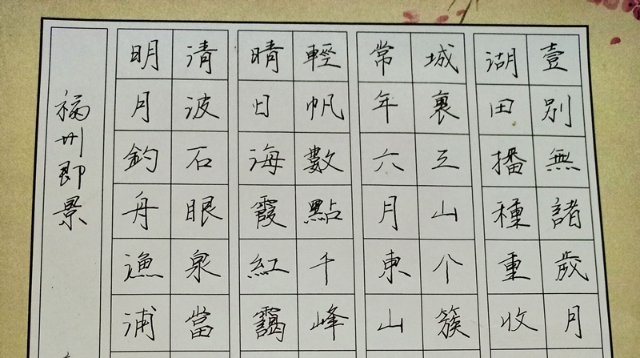 壹別無諸歲月
湖田播種重收
城裏三山个簇
常年六月東山
輕帆數點千峰
晴日海霞紅靄
清波石眼泉當
明月釣舟漁浦
福州即景